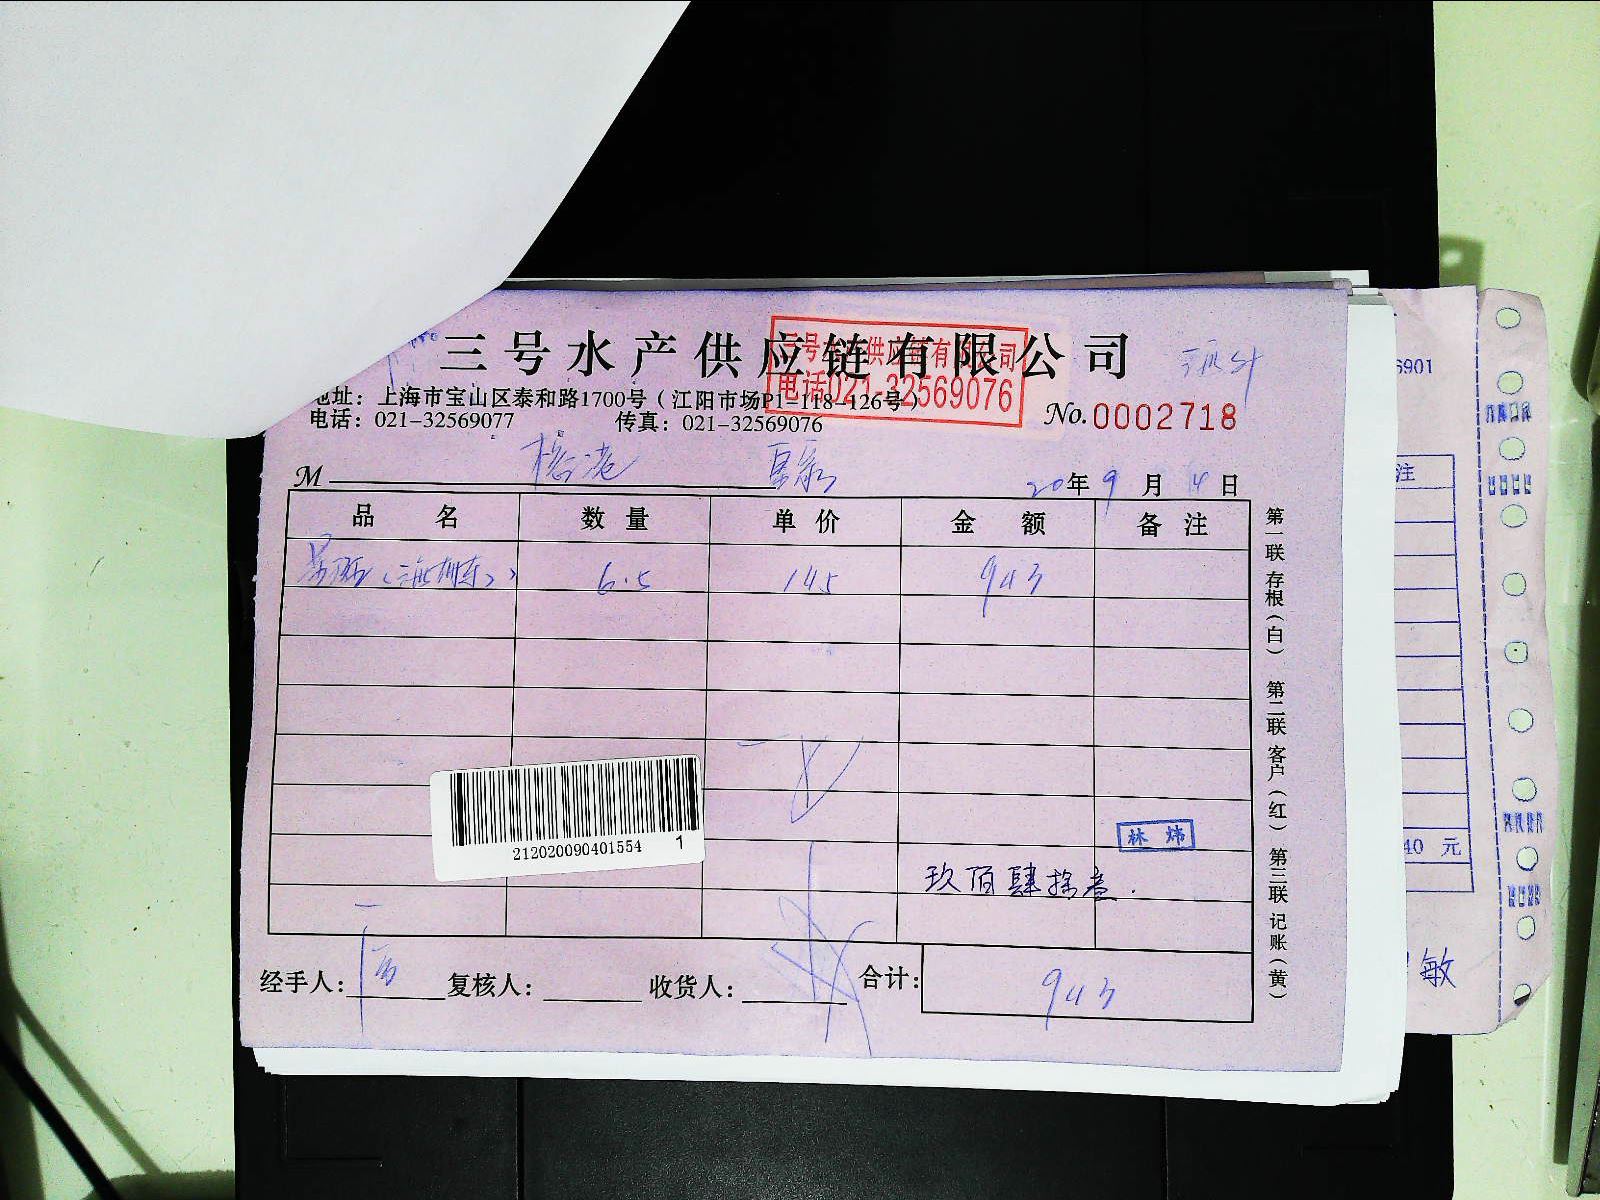 三号水产供应链有限公司
三号水产供应链有限公司
电话021-32569076
地址：上海市宝山区泰和路1700号（江阳市场P1-118-126号）
电话：021-32569077 传真：021-32569076
No.0002718
6901
M
20年9月4日
品名 数量 单价 金额 备注
6.5 145 943
注
林炜
212020090401554 1
玖佰肆拾叁.
40 元
经手人： 复核人： 收货人： 合计： 943
敏
第一联存根（白） 第二联客户（红） 第三联记账（黄）